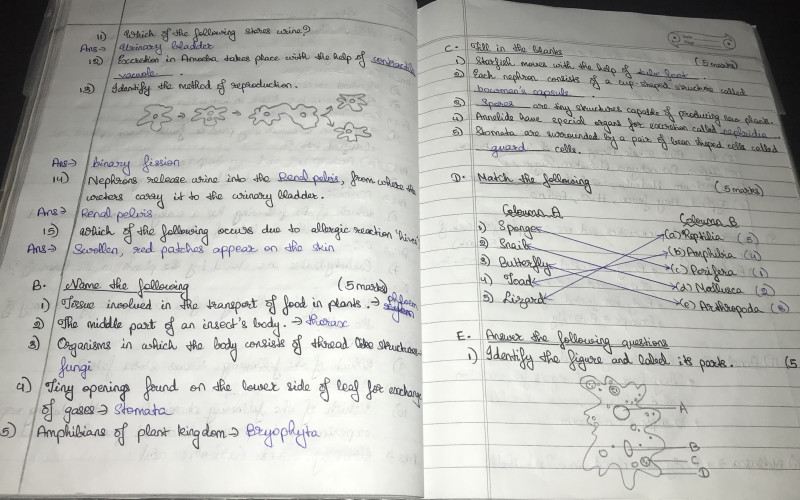 11) Which of the following stores urine?
Ans → Urinary bladder
12) Excretion in Amoeba takes place with the help of contractile
vacuole.
13) Identify the method of reproduction.
Ans → binary fission
14) Nephrons release urine into the Renal pelvis, from where the
ureters carry it to the urinary bladder.
Ans → Renal pelvis
15) Which of the following occurs due to allergic reaction 'hives'
Ans → Swollen, red patches appear on the skin
B. Name the following (5 marks)
1) Tissue involved in the transport of food in plants. → phloem
2) The middle part of an insect's body. → thorax
3) Organisms in which the body consists of thread like structures.
fungi
4) Tiny openings found on the lower side of leaf for exchange
of gases → Stomata
5) Amphibians of plant kingdom → Bryophyta
C. Fill in the blanks (5 marks)
1) Starfish moves with the help of tube feet.
2) Each nephron consists of a cup-shaped structure called
bowman's capsule
3) Spores are tiny structures capable of producing new plants.
4) Annelids have special organs for excretion called nephridia
5) Stomata are surrounded by a pair of bean shaped cells called
guard cells.
D. Match the following (5 marks)
Coloumn A Coloumn B
1) Sponges (a) Reptilia (5)
2) Snails (b) Amphibia (4)
3) Butterfly (c) Porifera (1)
4) Toad (d) Mollusca (2)
5) Lizard (e) Arthropoda (3)
E. Answer the following questions
1) Identify the figure and label its parts. (5
A
B
C
D